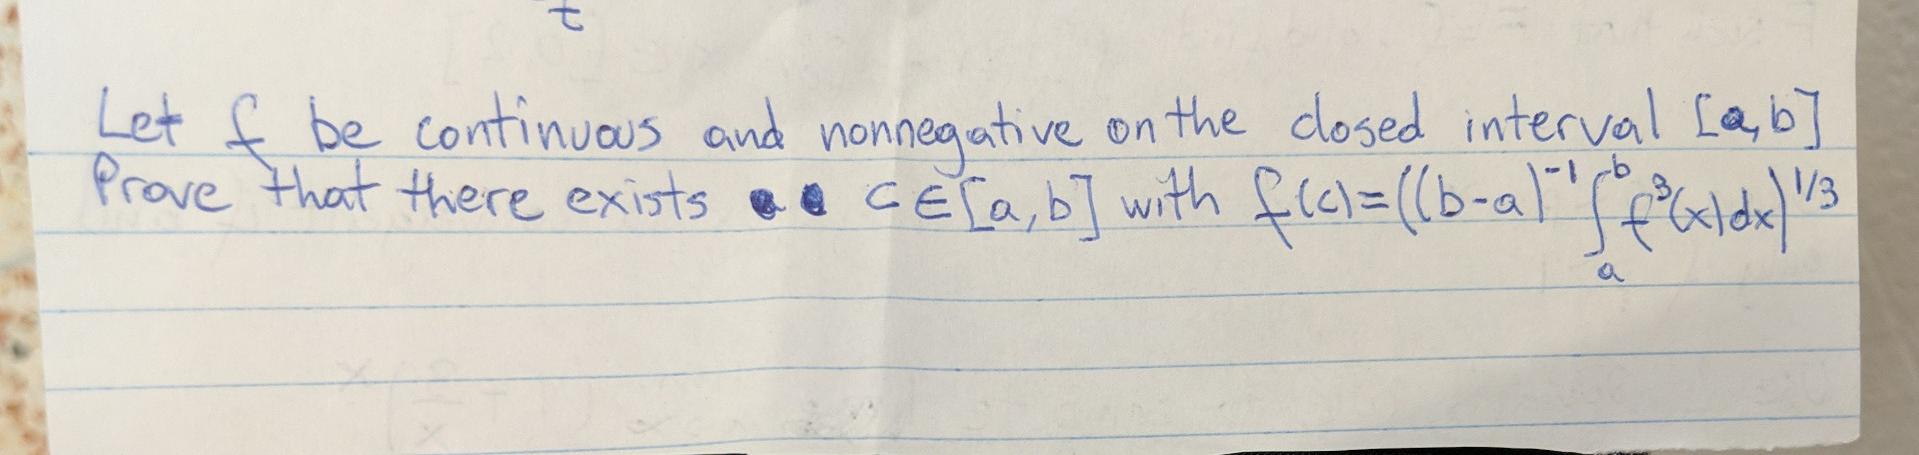 t
Let f be continuous and nonnegative on the closed interval [a,b]
Prove that there exists c∈[a,b] with f(c)=((b-a)⁻¹ ∫ₐᵇ f³(x)dx)^1/3